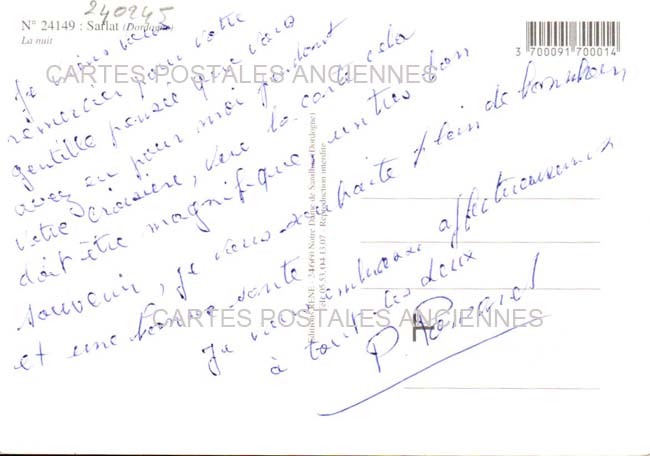 240945
N° 24149 : Sarlat (Dordogne)
La nuit
3 700091 700014
Je viens vous
remercier pour votre
gentille pensée que vous
avez eu pour moi pendant
votre croisière, vue la carte cela
doit être magnifique un très bon
souvenir, je vous souhaite plein de bonheur,
et une bonne santé
Je vous embrasse affectueusement
à tous les deux
P.
Editions RENE - 24660 Notre Dame de Sanilhac (Dordogne)
Tél. 05.53.04.13.07 - Reproduction interdite
CARTES POSTALES ANCIENNES
CARTES POSTALES ANCIENNES
H